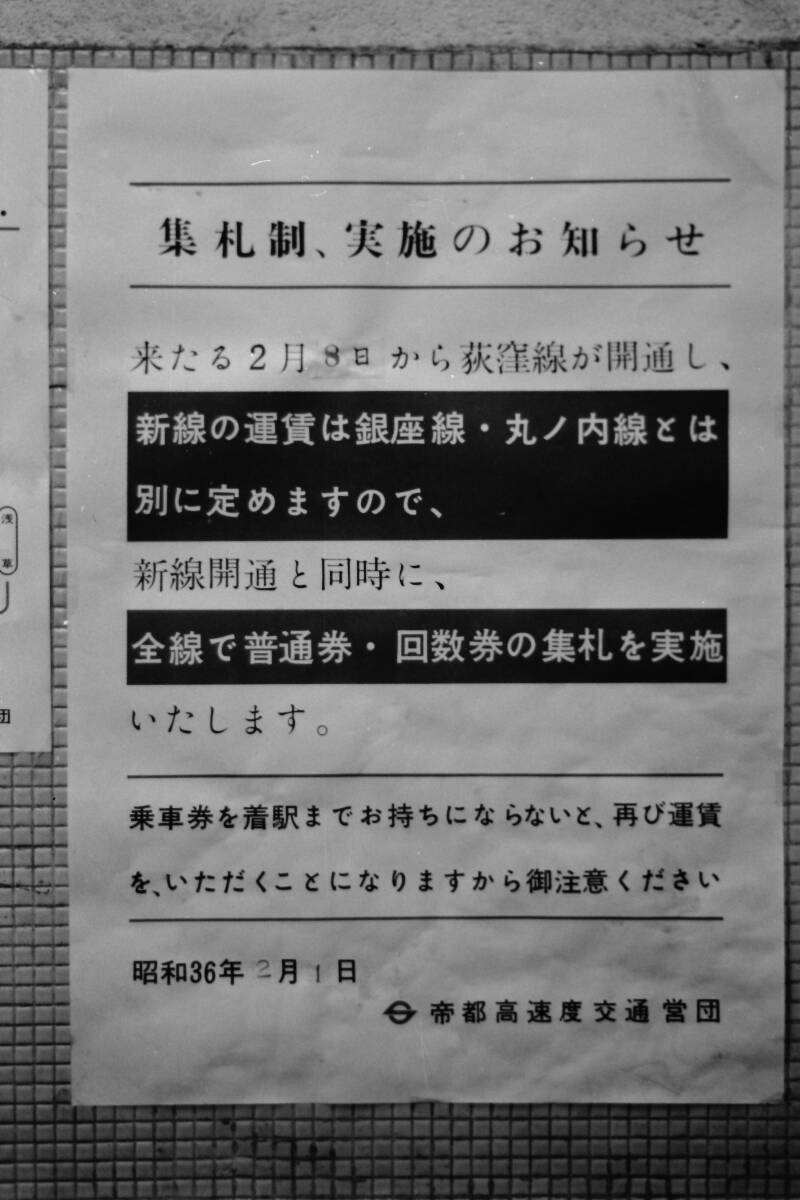 集札制、実施のお知らせ
来たる2月8日から荻窪線が開通し、
新線の運賃は銀座線・丸ノ内線とは
別に定めますので、
新線開通と同時に、
全線で普通券・回数券の集札を実施
いたします。
乗車券を着駅までお持ちにならないと、再び運賃
を、いただくことになりますから御注意ください
昭和36年2月1日
帝都高速度交通営団
浅草
団